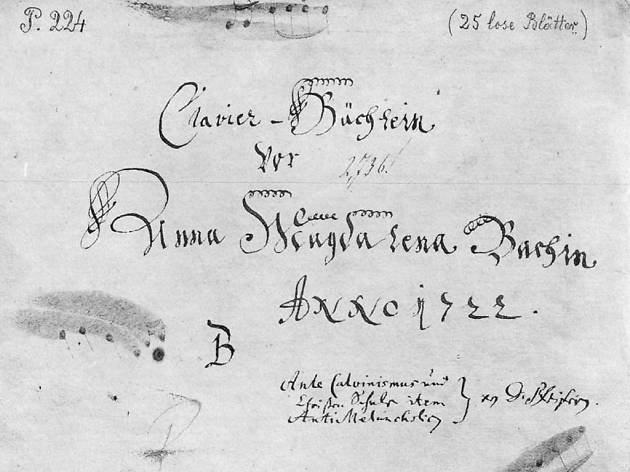 P. 224 (25 lose Blätter)
Clavier-Büchlein
vor
Anna Magdalena Bachin
ANNO 1722.
B
Ante Calvinismus und
Christen Schule item
Anti Melancholicus
D. Pfeifern.